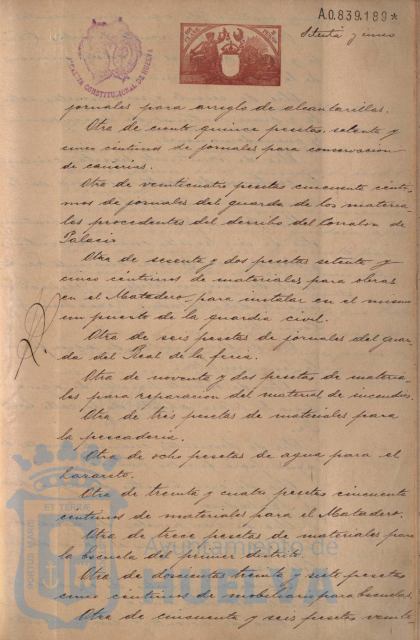 A.0.839.189*
Setenta y cinco
ALCALDIA CONSTITUCIONAL DE HUELVA
jornales para arreglo de alcantarillas.
Otra de ciento quince pesetas, setenta y
cinco céntimos de jornales para conservacion
de cañerias.
Otra de veinticuatro pesetas cincuenta cénti-
mos de jornales del guarda de los materia
les procedentes del derribo del Corralon de
Palacio
Otra de sesenta y dos pesetas setenta y
cinco céntimos de materiales para obras
en el Matadero para instalar en el mismo
un puesto de la guardia civil.
Otra de seis pesetas de jornales del guar
da del Real de la feria.
Otra de noventa y dos pesetas de materia
les para reparacion del material de incendios.
Otra de tres pesetas de materiales para
la pescaderia.
Otra de ocho pesetas de agua para el
lazareto.
Otra de treinta y cuatro pesetas cincuenta
centimos de materiales para el Matadero.
Otra de trece pesetas de materiales para
la Escuela del primer distrito.
Otra de doscientas treinta y siete pesetas
cinco céntimos de mobiliario para escuelas
Otra de cincuenta y seis pesetas veinte
PORTUS MARIS
ET TERRÆ
Ayuntamiento de
HUELVA